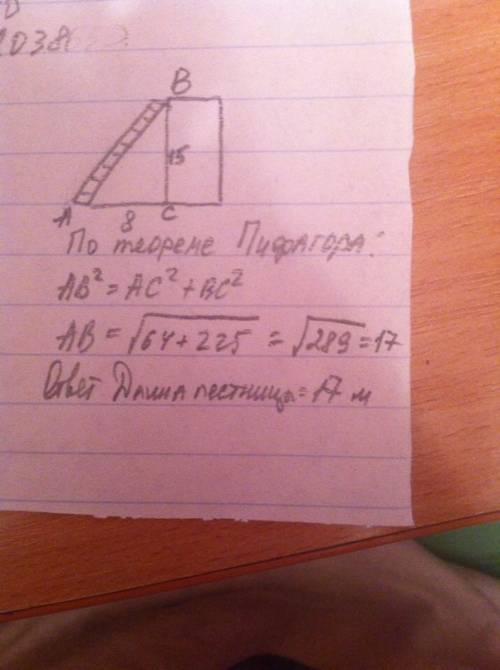 B
15
A
8
C
По теореме Пифагора:
AB² = AC² + BC²
AB = √64+225 = √289 = 17
Ответ Длина лестницы = 17 м